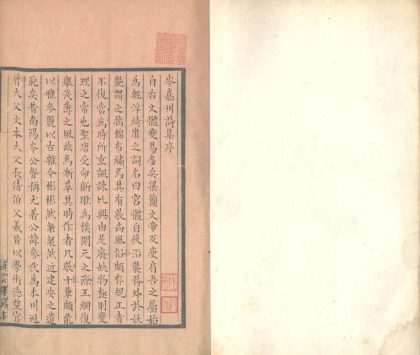 岑嘉州詩集序
自古文體變易多矣梁簡文帝及庾肩吾之屬始
為輕浮綺靡之詞名曰宮體自後沿襲務於妖
艷謂之摛錦布繡焉其有敦高風俗頗存規正者
不復當為時所重諷諫比興由是廢缺物極則變
理之常也聖唐受命斲雕為樸開元之際王綱復
舉淺薄之風茲焉漸革其時作者凡數十輩頗能
以雅參麗以古雜今彬彬然粲粲然近建安之遺
範矣昔南陽岑公聲稱尤著公諱參代為本州冠
曾大父文本大父長倩伯父羲皆以學術德望官